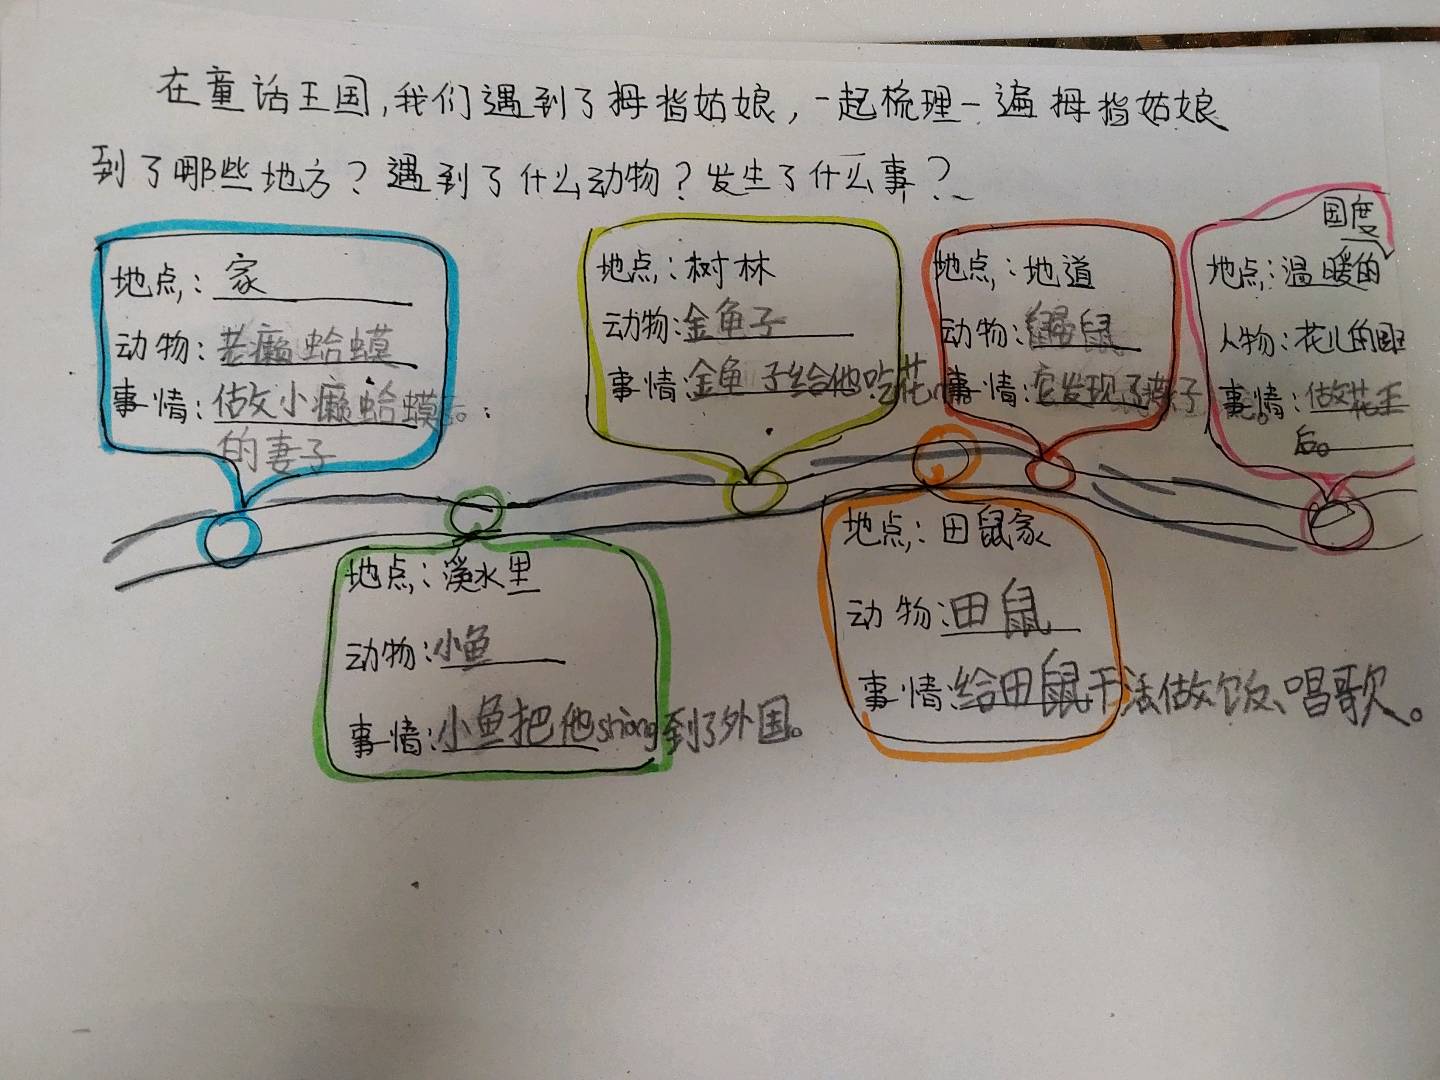 在童话王国,我们遇到了拇指姑娘,一起梳理一遍拇指姑娘
到了哪些地方?遇到了什么动物?发生了什么事?
地点:家
动物:老癞蛤蟆
事情:做小癞蛤蟆
的妻子。
地点:溪水里
动物:小鱼
事情:小鱼把他shiong到了外国。
地点:树林
动物:金龟子
事情:金龟子给他吃花
地点:田鼠家
动物:田鼠
事情:给田鼠干活做饭、唱歌。
地点:地道
动物:鼠
事情:它发现了燕子
国度
地点:温暖的
人物:花儿的国王
事情:做花王
后。